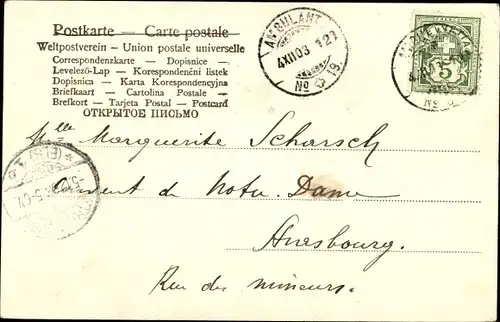 Postkarte — Carte postale
Weltpostverein - Union postale universelle
Correspondenzkarte - Dopisnice -
Levelező-Lap - Korespondenční listek
Dopisnica - Karta Korespondencyjna
Briefkaart - Cartolina Postale -
Brefkort - Tarjeta Postal - Postcard
ОТКРЫТОЕ ПИСЬМО
AMBULANT
4XII03
No 19.
5
Mlle Marguerite Scharsch
Couvent de Notre-Dame
Strasbourg.
Rue des mineurs.